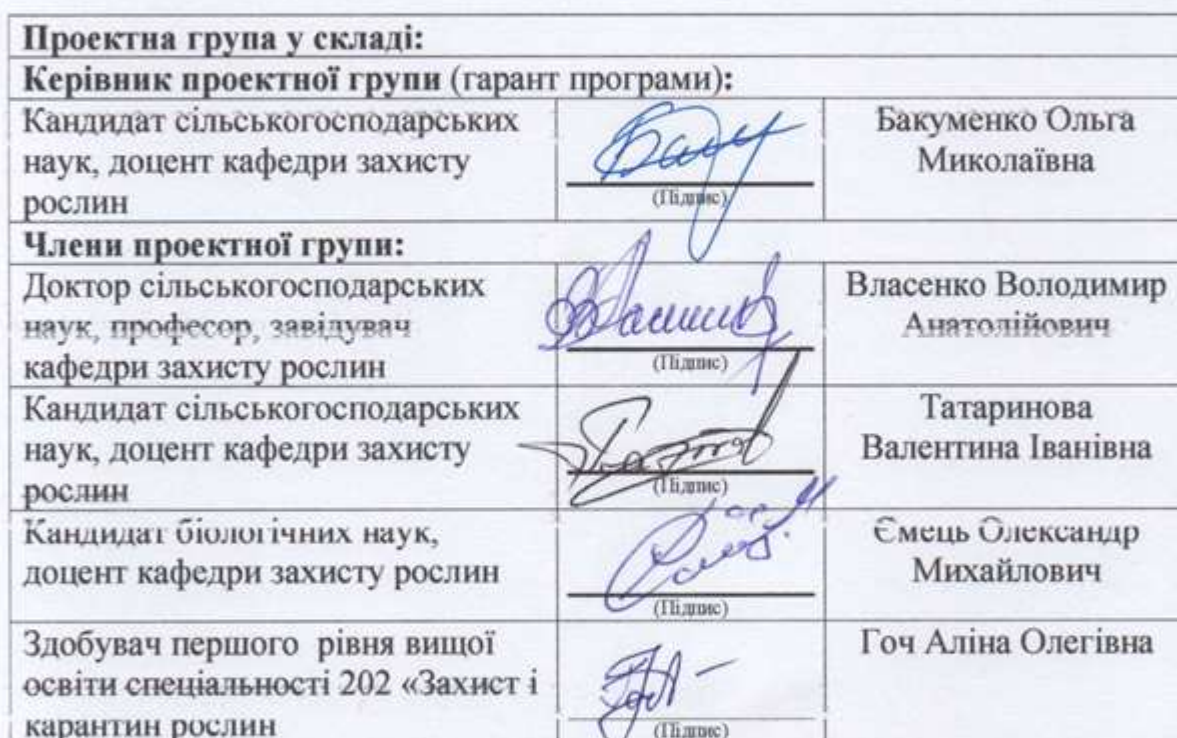 Проектна група у складі:
Керівник проектної групи (гарант програми):
Кандидат сільськогосподарських
наук, доцент кафедри захисту
рослин
(Підпис)
Бакуменко Ольга
Миколаївна
Члени проектної групи:
Доктор сільськогосподарських
наук, професор, завідувач
кафедри захисту рослин
(Підпис)
Власенко Володимир
Анатолійович
Кандидат сільськогосподарських
наук, доцент кафедри захисту
рослин
(Підпис)
Татаринова
Валентина Іванівна
Кандидат біологічних наук,
доцент кафедри захисту рослин
(Підпис)
Ємець Олександр
Михайлович
Здобувач першого рівня вищої
освіти спеціальності 202 «Захист і
карантин рослин
(Підпис)
Гоч Аліна Олегівна